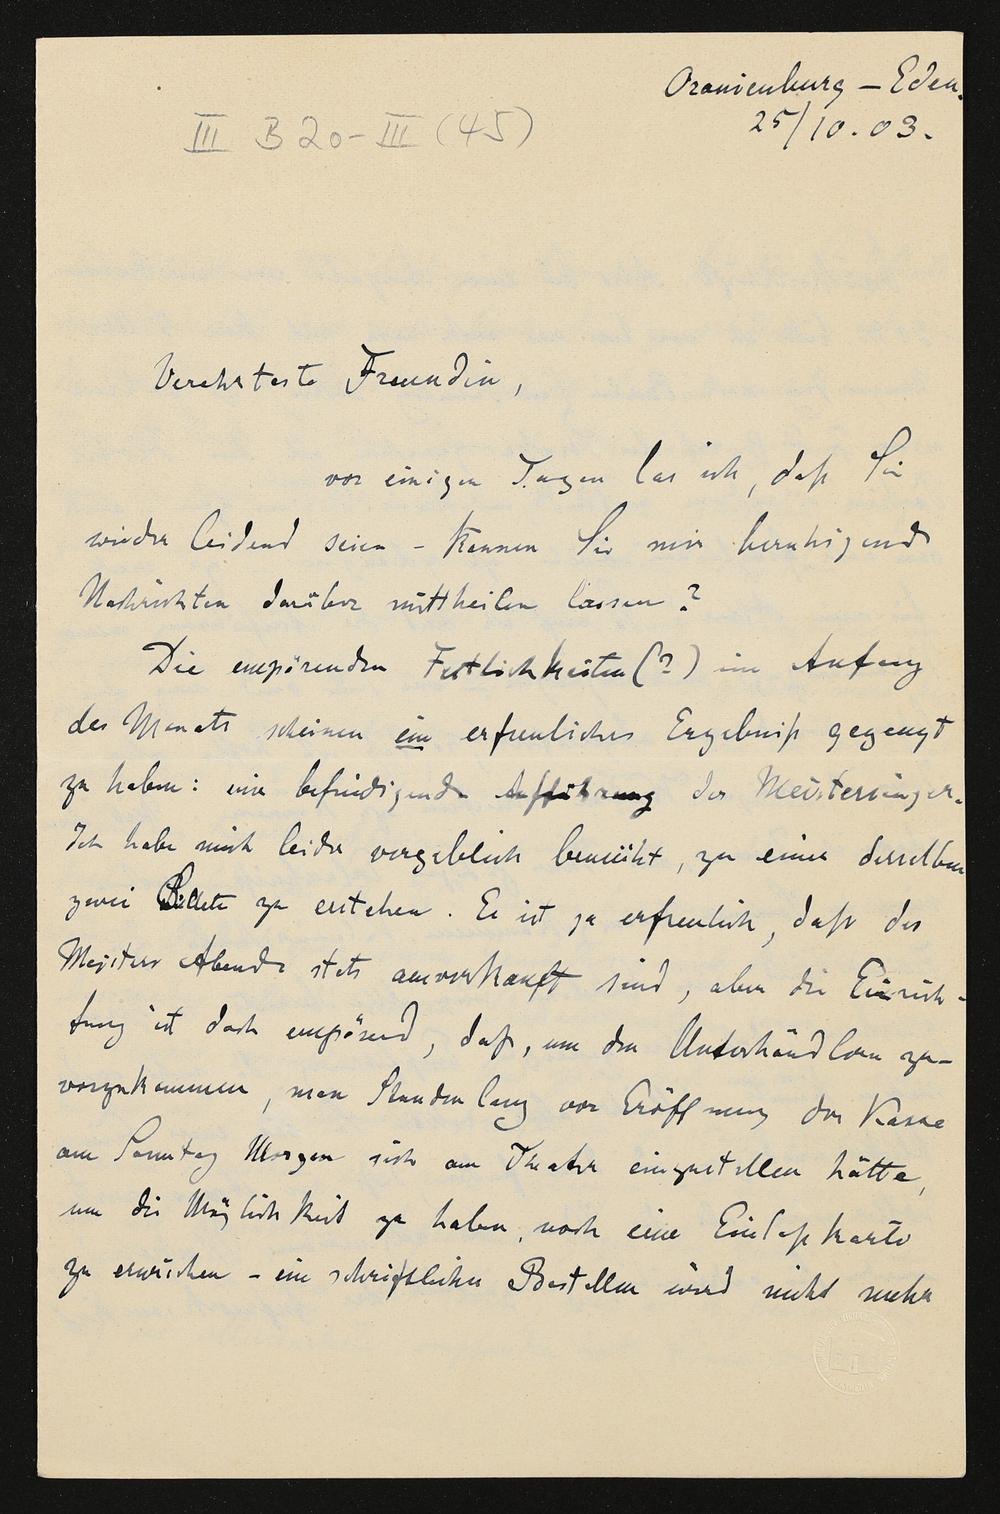 Oranienburg – Eden.
25/10.03.
III B 20-III (45)
Verehrteste Freundin,
vor einigen Tagen las ich, daß Sie
wieder leidend seien – können Sie mir beruhigende
Nachrichten darüber mittheilen lassen?
Die empörenden Festlichkeiten (?) im Anfang
des Monats scheinen ein erfreuliches Ergebniß gezeugt
zu haben: eine befriedigende Aufführung der Meistersinger.
Ich habe mich leider vergeblich bemüht, zu einer derselben
zwei Billete zu erstehen. Es ist ja erfreulich, daß des
Meisters Abende stets ausverkauft sind, aber die Einrich-
tung ist doch empörend, daß, um den Unterhändlern zu-
vorzukommen, man Stunden lang vor Eröffnung der Kasse
am Sonntag Morgen sich am Theater einzustellen hätte,
um die Möglichkeit zu haben, noch eine Einlaßkarte
zu erwischen – ein schriftliches Bestellen wird nicht mehr